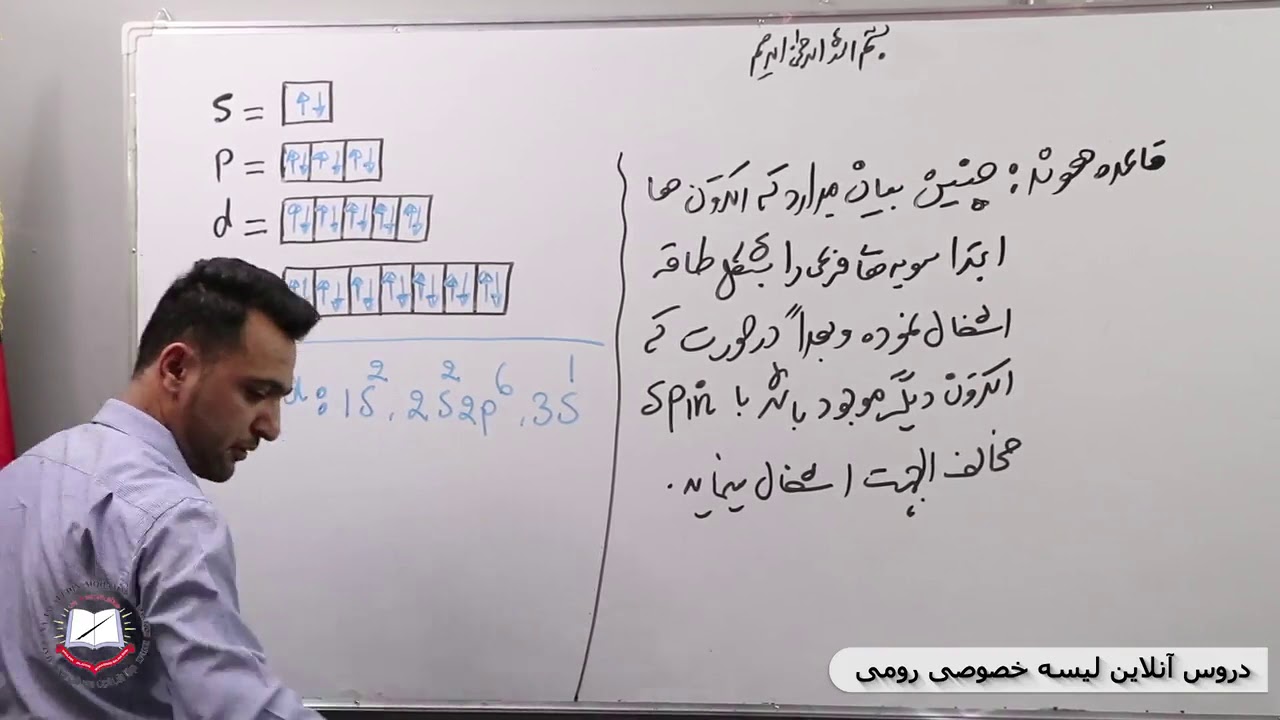 بسم الله الرحمن الرحیم
S = ↑↓
P = ↑↓ ↑↓ ↑↓
d = ↑↓ ↑↓ ↑↓ ↑↓ ↑↓
↑↓ ↑↓ ↑↓ ↑↓ ↑↓ ↑↓ ↑↓
: 1S², 2S² 2p⁶, 3S¹
قاعده هوند: چنین بیان میدارد که الکترون ها
ابتدا سویه های فرعی را بشکل طاقه
اشغال نموده و بعداً در صورت که
الکترون دیگر موجود باشد با Spin
مخالف الجهت اشغال مینماید.
دروس آنلاین لیسه خصوصی رومی